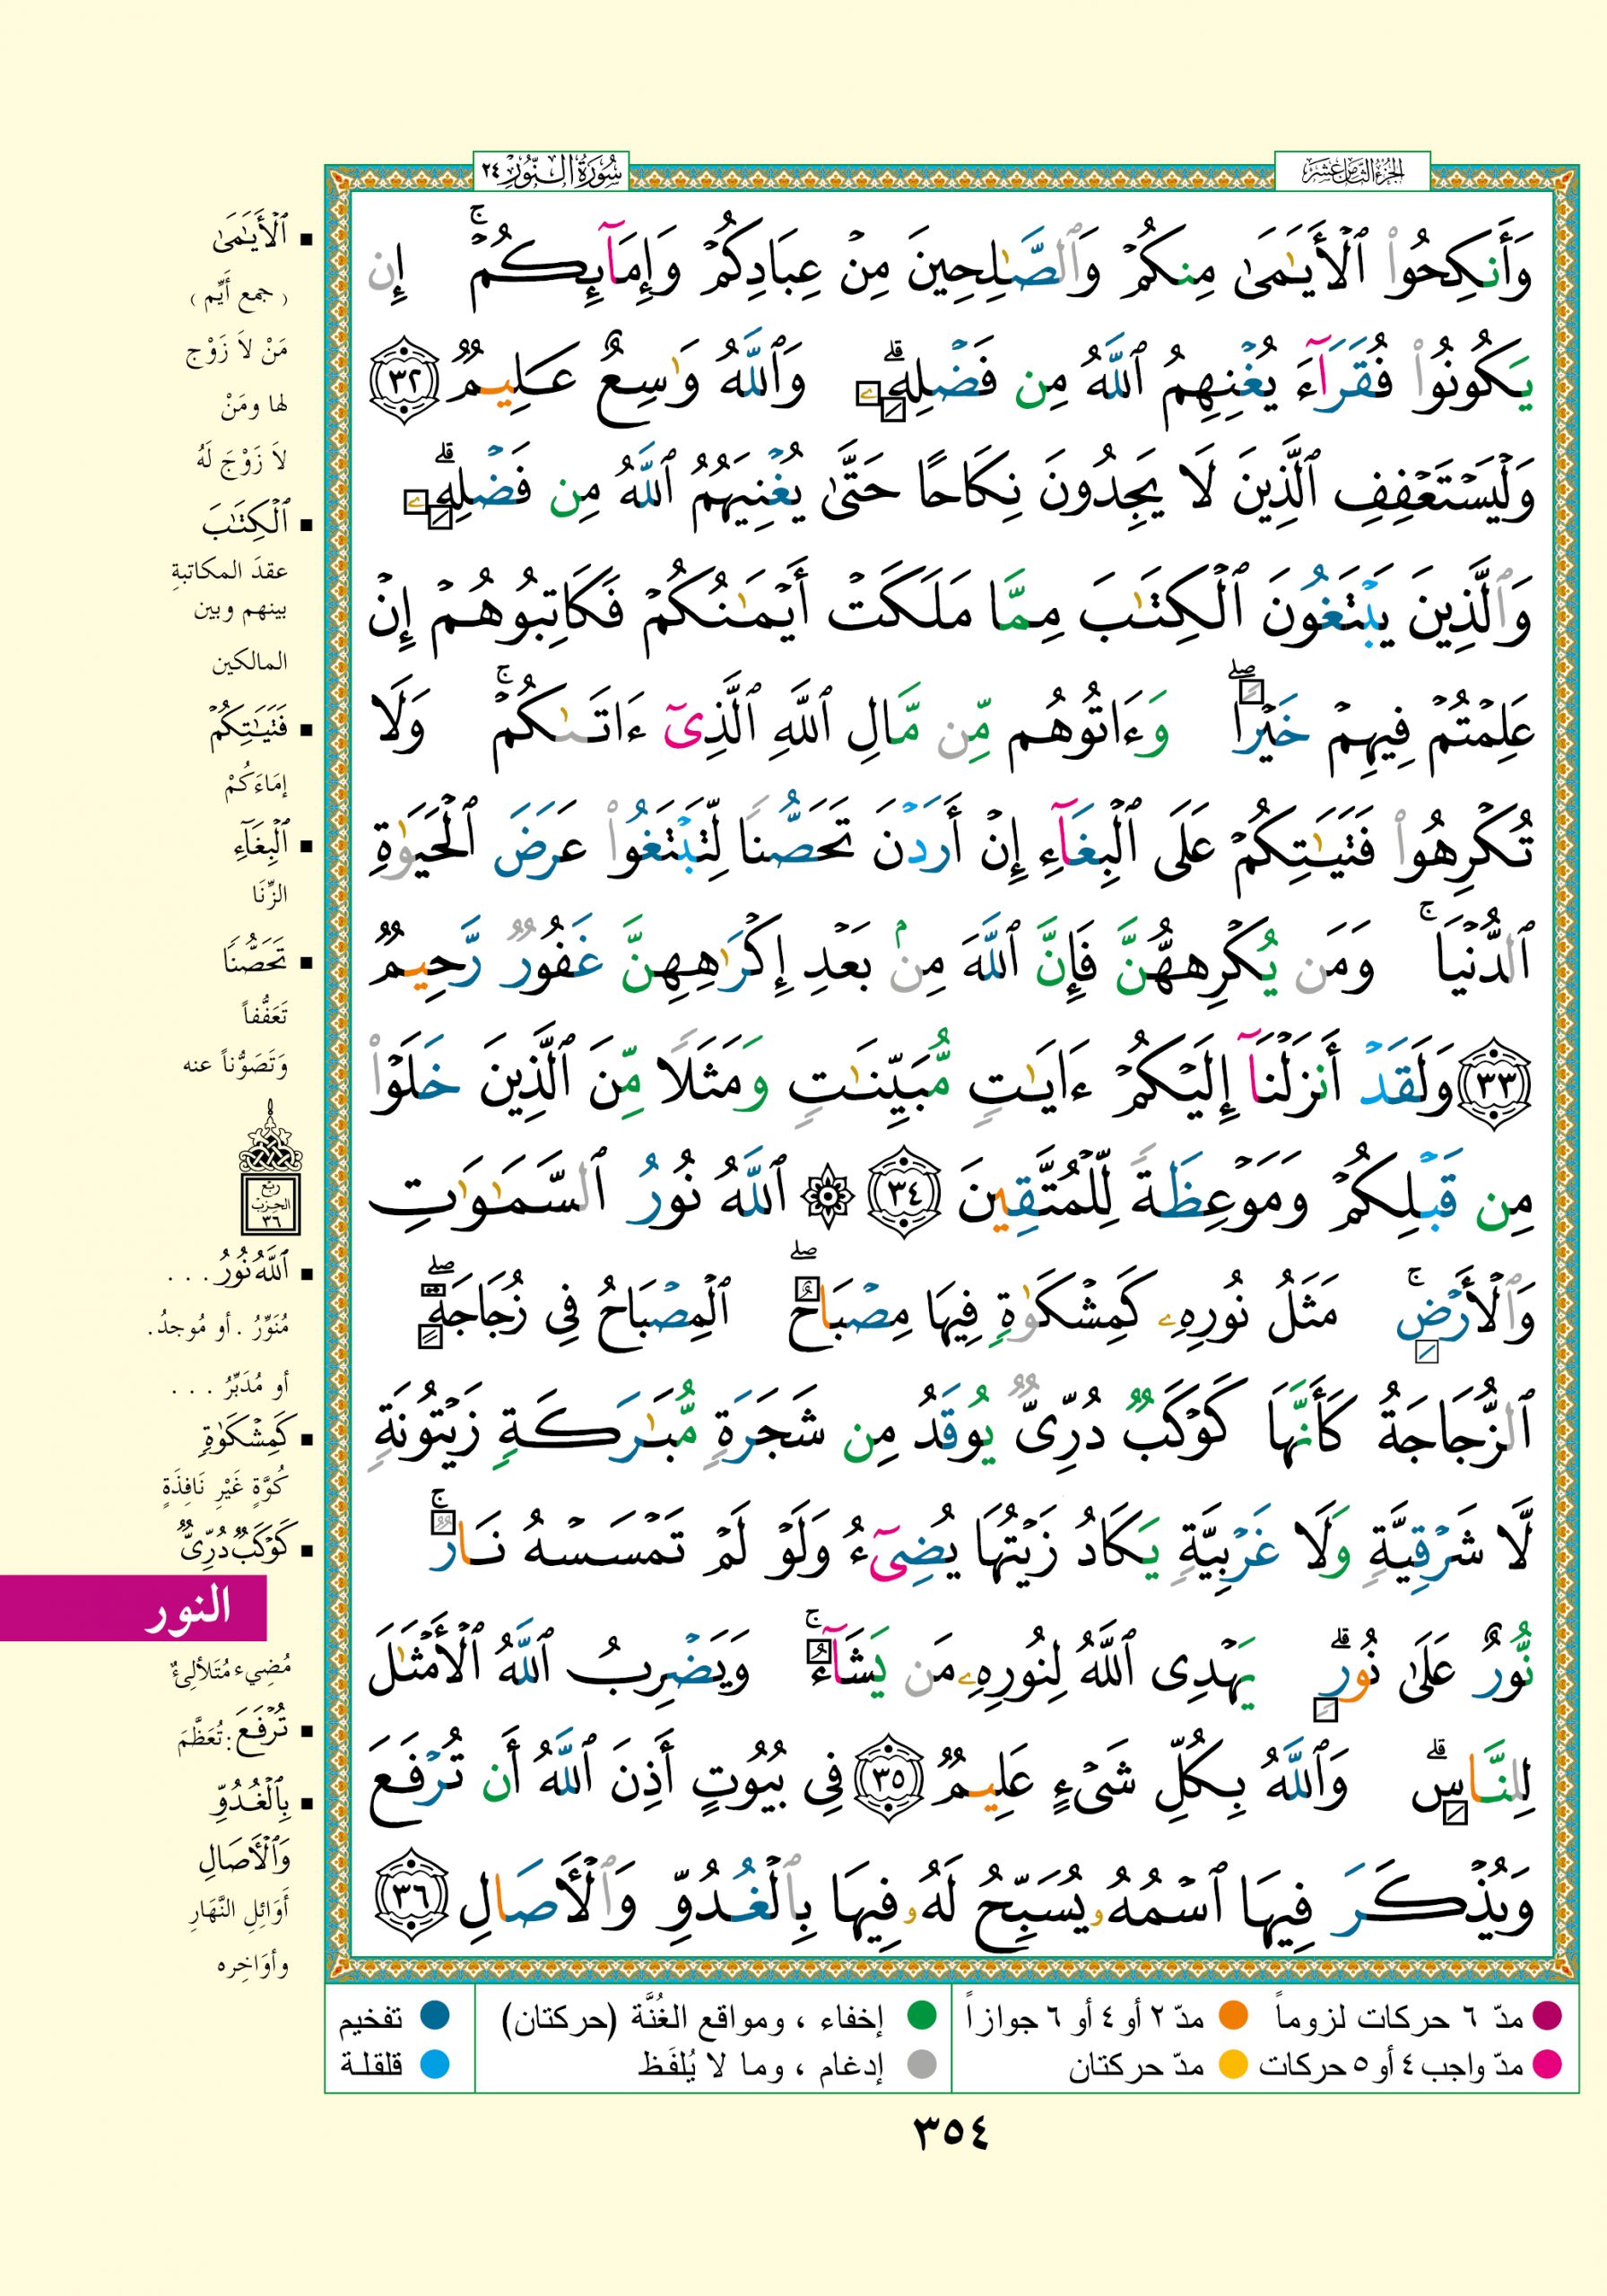 الجزء الثامن عشر
سورة النور ٢٤
وَأَنكِحُوا۟ ٱلْأَيَـٰمَىٰ مِنكُمْ وَٱلصَّـٰلِحِينَ مِنْ عِبَادِكُمْ وَإِمَآئِكُمْ ۚ إِن
يَكُونُوا۟ فُقَرَآءَ يُغْنِهِمُ ٱللَّهُ مِن فَضْلِهِۦ ۗ وَٱللَّهُ وَٰسِعٌ عَلِيمٌ ﴿٣٢﴾
وَلْيَسْتَعْفِفِ ٱلَّذِينَ لَا يَجِدُونَ نِكَاحًا حَتَّىٰ يُغْنِيَهُمُ ٱللَّهُ مِن فَضْلِهِۦ ۗ
وَٱلَّذِينَ يَبْتَغُونَ ٱلْكِتَـٰبَ مِمَّا مَلَكَتْ أَيْمَـٰنُكُمْ فَكَاتِبُوهُمْ إِنْ
عَلِمْتُمْ فِيهِمْ خَيْرًا ۖ وَءَاتُوهُم مِّن مَّالِ ٱللَّهِ ٱلَّذِىٓ ءَاتَىٰكُمْ ۚ وَلَا
تُكْرِهُوا۟ فَتَيَـٰتِكُمْ عَلَى ٱلْبِغَآءِ إِنْ أَرَدْنَ تَحَصُّنًا لِّتَبْتَغُوا۟ عَرَضَ ٱلْحَيَوٰةِ
ٱلدُّنْيَا ۚ وَمَن يُكْرِههُّنَّ فَإِنَّ ٱللَّهَ مِنۢ بَعْدِ إِكْرَٰهِهِنَّ غَفُورٌ رَّحِيمٌ
﴿٣٣﴾ وَلَقَدْ أَنزَلْنَآ إِلَيْكُمْ ءَايَـٰتٍ مُّبَيِّنَـٰتٍ وَمَثَلًا مِّنَ ٱلَّذِينَ خَلَوْا۟
مِن قَبْلِكُمْ وَمَوْعِظَةً لِّلْمُتَّقِينَ ﴿٣٤﴾ ۞ ٱللَّهُ نُورُ ٱلسَّمَـٰوَٰتِ
وَٱلْأَرْضِ ۚ مَثَلُ نُورِهِۦ كَمِشْكَوٰةٍ فِيهَا مِصْبَاحٌ ۖ ٱلْمِصْبَاحُ فِى زُجَاجَةٍ ۖ
ٱلزُّجَاجَةُ كَأَنَّهَا كَوْكَبٌ دُرِّىٌّ يُوقَدُ مِن شَجَرَةٍ مُّبَـٰرَكَةٍ زَيْتُونَةٍ
لَّا شَرْقِيَّةٍ وَلَا غَرْبِيَّةٍ يَكَادُ زَيْتُهَا يُضِىٓءُ وَلَوْ لَمْ تَمْسَسْهُ نَارٌ ۚ
نُّورٌ عَلَىٰ نُورٍ ۗ يَهْدِى ٱللَّهُ لِنُورِهِۦ مَن يَشَآءُ ۚ وَيَضْرِبُ ٱللَّهُ ٱلْأَمْثَـٰلَ
لِلنَّاسِ ۗ وَٱللَّهُ بِكُلِّ شَىْءٍ عَلِيمٌ ﴿٣٥﴾ فِى بُيُوتٍ أَذِنَ ٱللَّهُ أَن تُرْفَعَ
وَيُذْكَرَ فِيهَا ٱسْمُهُۥ يُسَبِّحُ لَهُۥ فِيهَا بِٱلْغُدُوِّ وَٱلْـَٔاصَالِ ﴿٣٦﴾
■ ٱلْأَيَـٰمَىٰ
( جمع أَيِّم )
مَنْ لاَ زَوْج
لها ومَنْ
لاَ زَوْجَ لَهُ
■ ٱلْكِتَـٰبَ
عقدَ المكاتبةِ
بينهم وبين
المالكين
■ فَتَيَـٰتِكُمْ
إمَاءَكُمْ
■ ٱلْبِغَآءِ
الزِّنَا
■ تَحَصُّنًا
تَعَفُّفاً
وَتَصَوُّناً عنه
ربع
الحزب
٣٦
■ ٱللَّهُ نُورُ . . .
مُنَوِّرُ . أو مُوجدُ .
أو مُدَبِّرُ . . .
■ كَمِشْكَوٰةٍ
كُوَّةٍ غَيْرِ نَافِذَةٍ
■ كَوْكَبٌ دُرِّىٌّ
النور
مُضِيء مُتَلأْلِئٌ
■ تُرْفَعَ : تُعَظَّمَ
■ بِٱلْغُدُوِّ
وَٱلْـَٔاصَالِ
أَوَائِلِ النَّهَارِ
وأوَاخِره
مدّ ٦ حركات لزوماً
مدّ ٢ أو ٤ أو ٦ جوازاً
إخفاء ، ومواقع الغُنَّة (حركتان)
تفخيم
مدّ واجب ٤ أو ٥ حركات
مدّ حركتان
إدغام ، وما لا يُلفَظ
قلقلة
٣٥٤